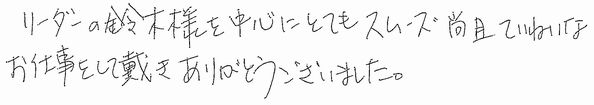 リーダーの鈴木様を中心にとてもスムーズ尚且ていねいな
お仕事をして戴きありがとうございました。